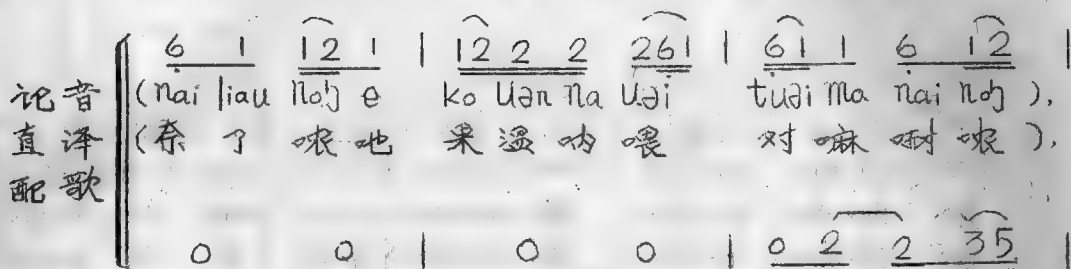 6 1 12 1 | 12 2 2 261 | 61 1 6 12 |
记音 (nai liau noŋ e ko uən na uəi tuəi ma nai noŋ ),
直译 (奈 了 哝 吔 果 温 呐 喂 对 嘛 哝 ),
配歌
0 0 | 0 0 | 0 2 2 35 |